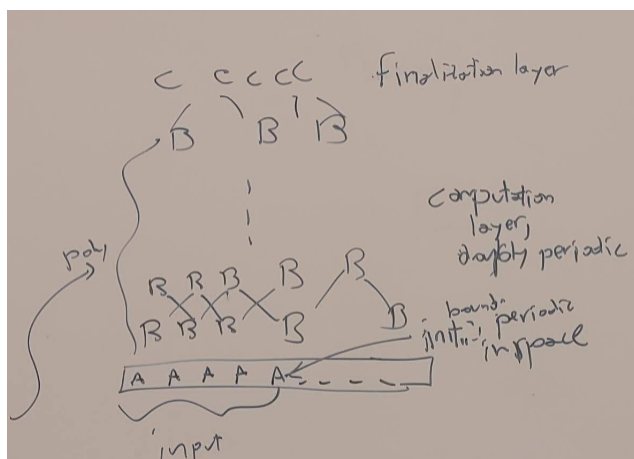 C C C C C finalization layer
B B B
computation
layer,
poly
periodic
B B B B B
B B B B B
bound.
periodic
in space
A A A A A
input